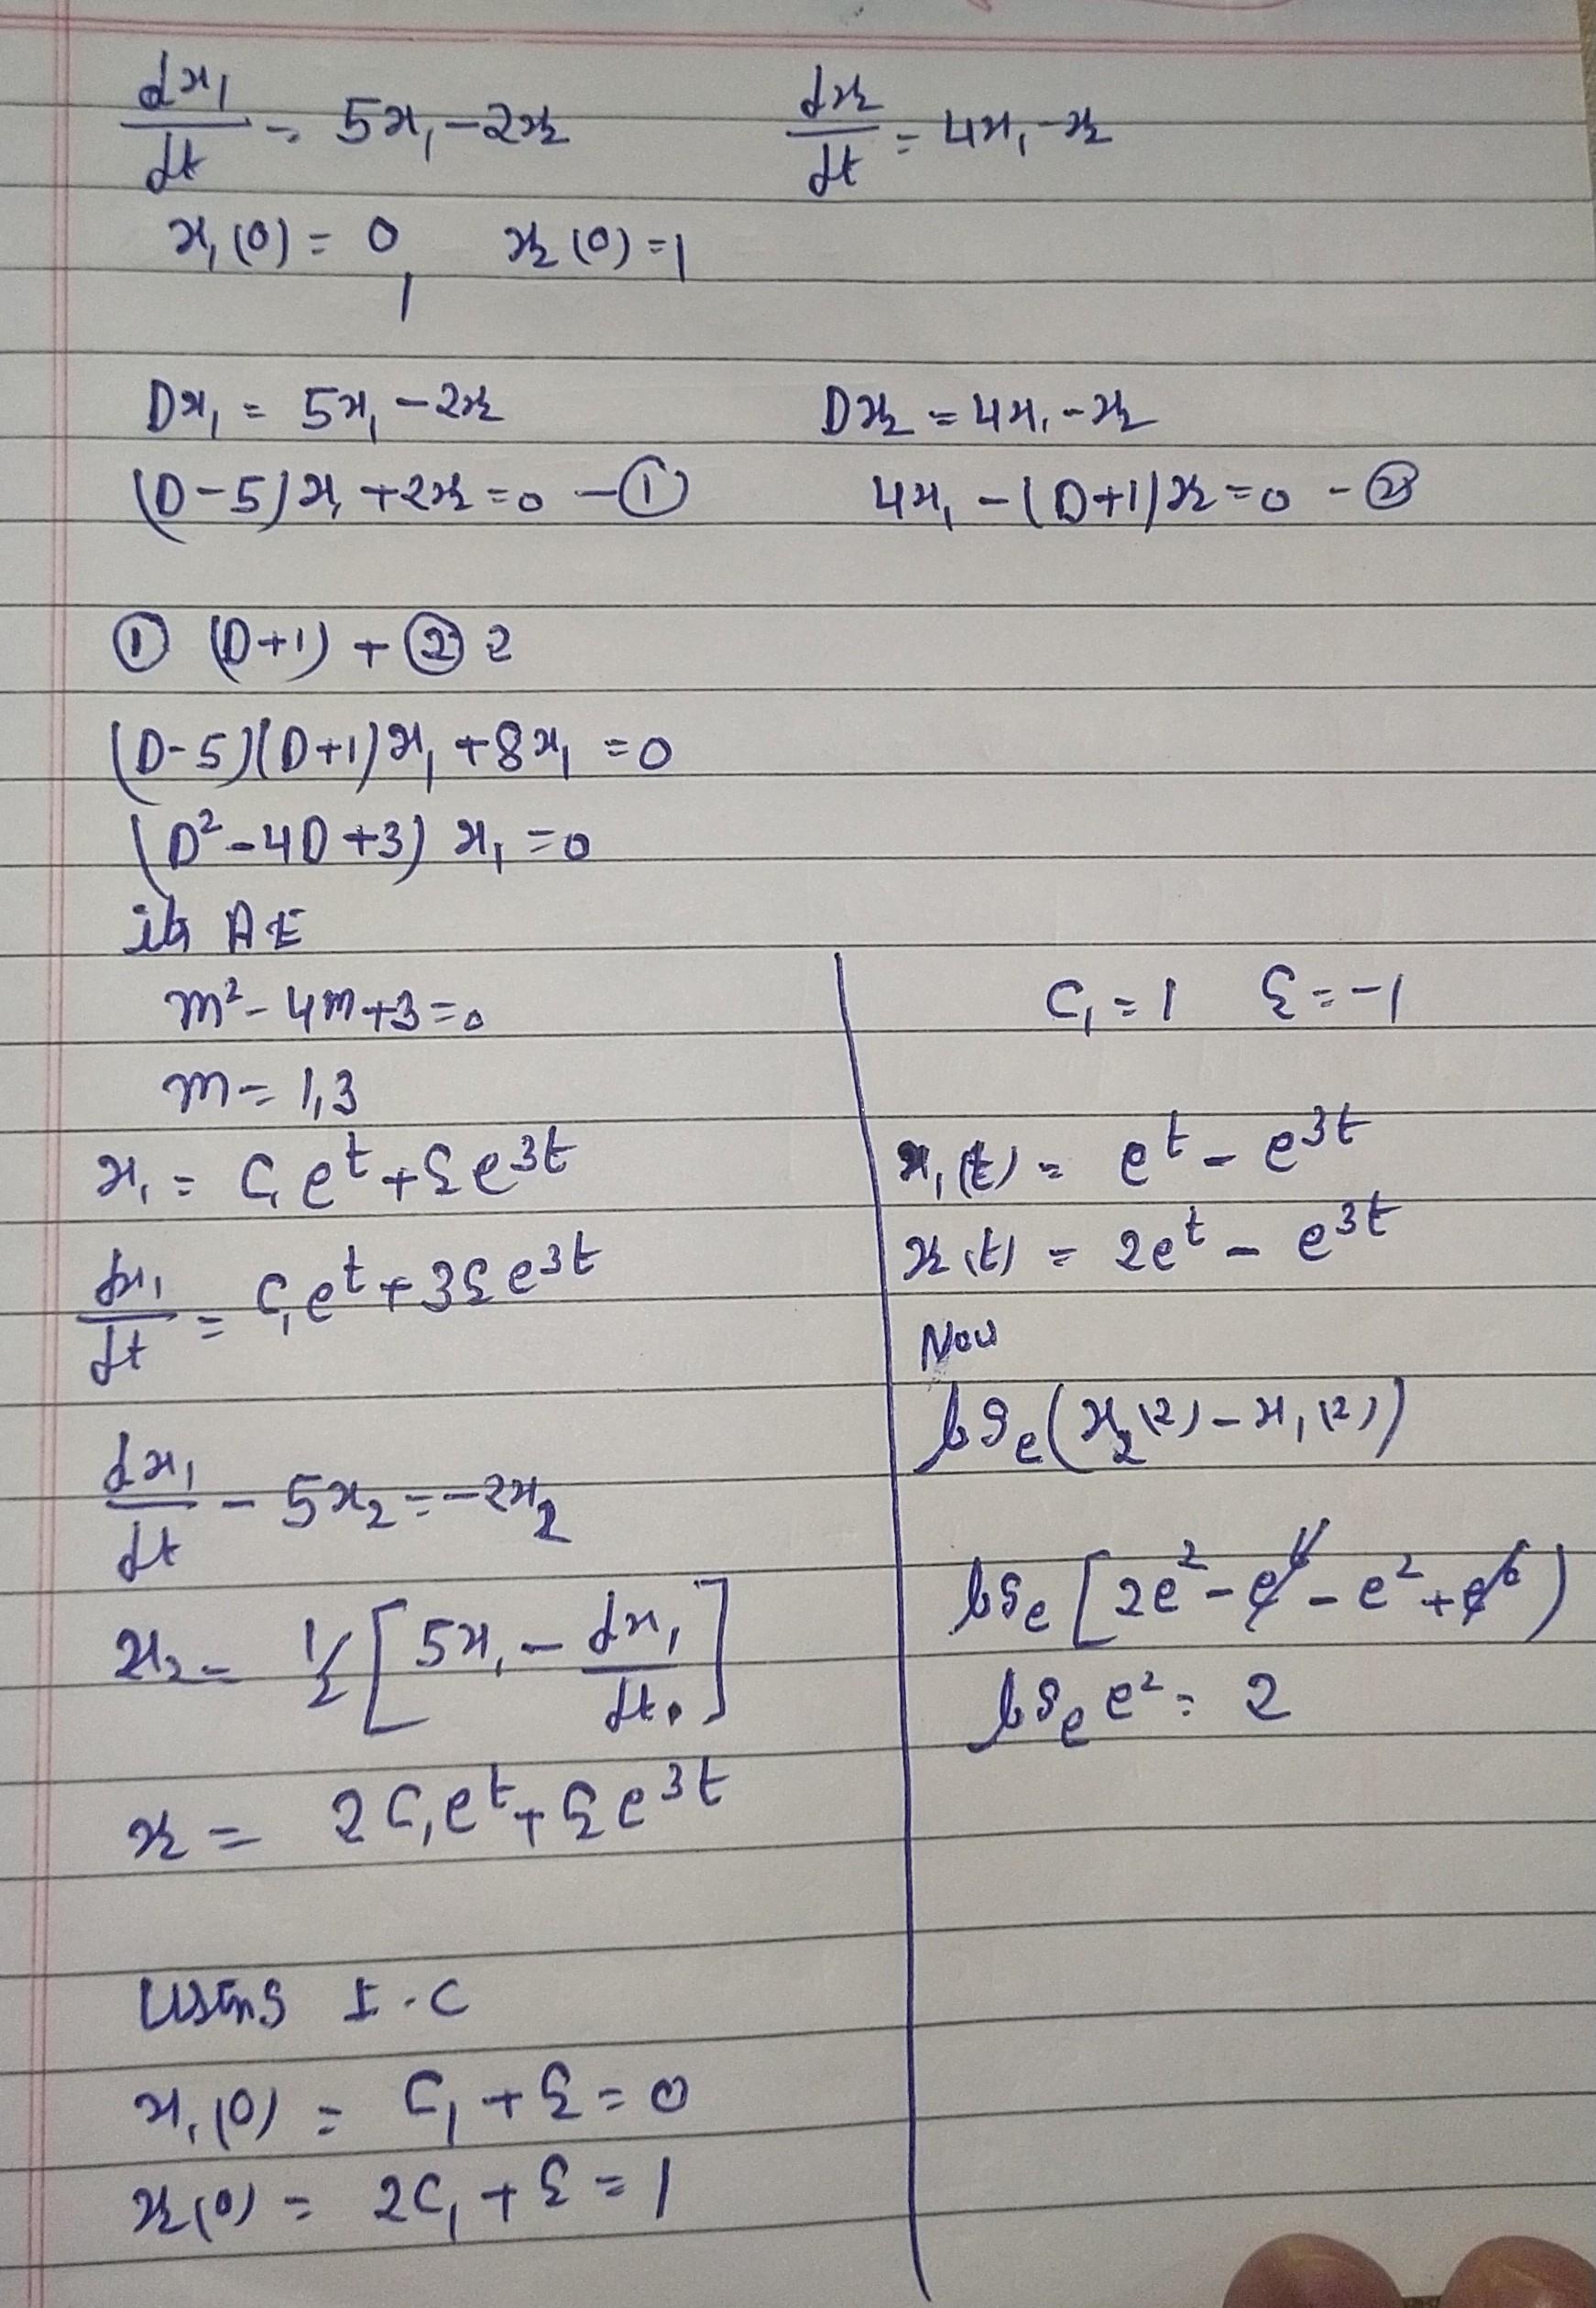 dx₁/dt = 5x₁ - 2x₂    dx₂/dt = 4x₁ - x₂
x₁(0) = 0, x₂(0) = 1
Dx₁ = 5x₁ - 2x₂    Dx₂ = 4x₁ - x₂
(D-5)x₁ + 2x₂ = 0 - ①    4x₁ - (D+1)x₂ = 0 - ②
① (D+1) + ② 2
(D-5)(D+1)x₁ + 8x₁ = 0
(D² - 4D + 3) x₁ = 0
its AE
m² - 4m + 3 = 0
m = 1,3
x₁ = C₁e^t + C₂e^3t
dx₁/dt = C₁e^t + 3C₂e^3t
dx₁/dt - 5x₂ = -2x₂
x₂ = 1/2 [5x₁ - dx₁/dt]
x₂ = 2C₁e^t + C₂e^3t
Using I.C
x₁(0) = C₁ + C₂ = 0
x₂(0) = 2C₁ + C₂ = 1
C₁ = 1  C₂ = -1
x₁(t) = e^t - e^3t
x₂(t) = 2e^t - e^3t
Now
logₑ(x₂(2) - x₁(2))
logₑ[2e² - e⁶ - e² + e⁶)
logₑ e² = 2